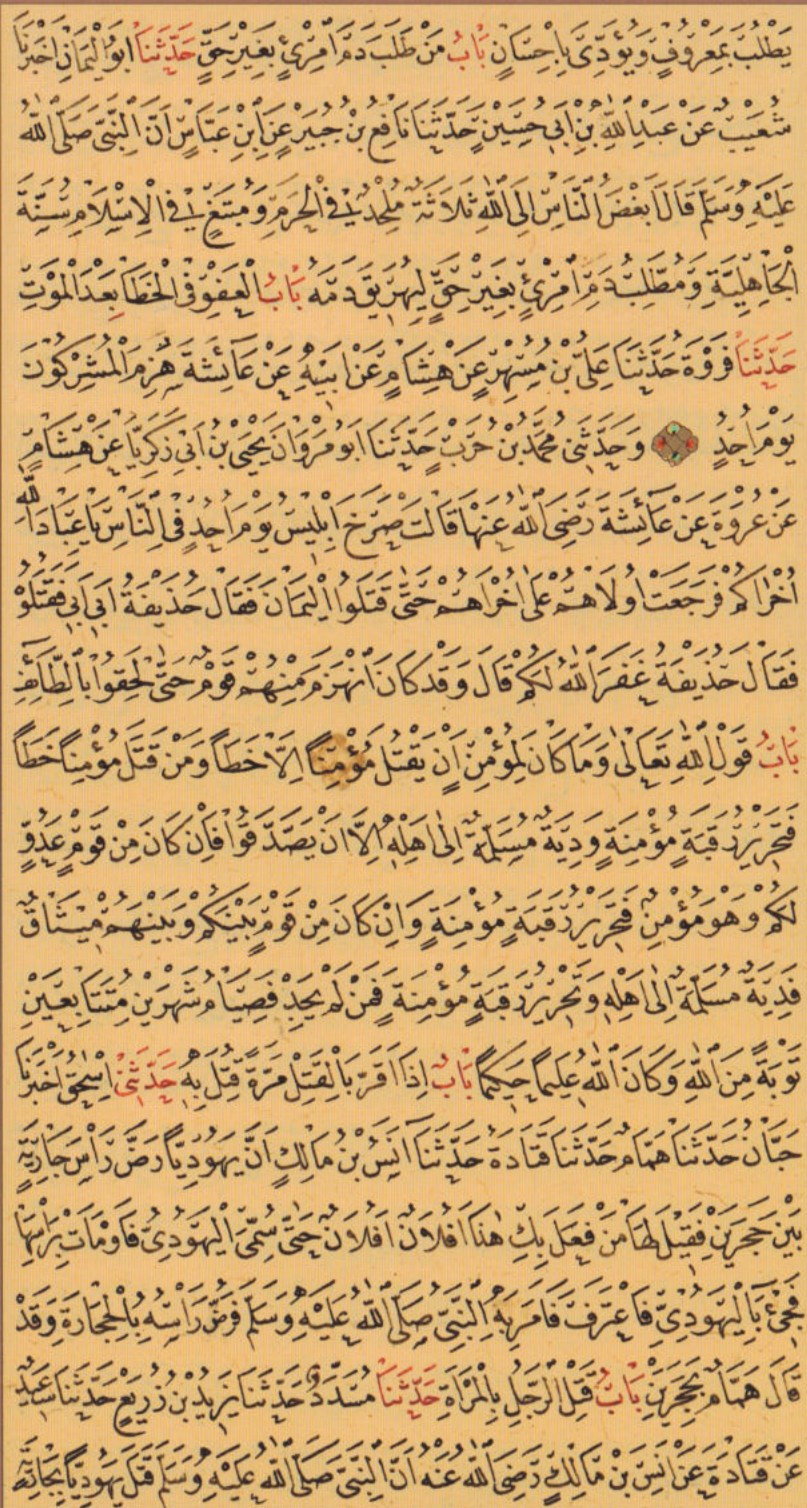 يَطْلُبَ بِمَعْرُوفٍ وَيُؤَدِّيَ بِاِحْسَانٍ بَابُ مَنْ طَلَبَ دَمَ امْرِئٍ بِغَيْرِ حَقٍّ حَدَّثَنَا اَبُو الْيَمَانِ اَخْبَرَنَا
شُعَيْبٌ عَنْ عَبْدِ اللّٰهِ بْنِ اَبِي حُسَيْنٍ حَدَّثَنَا نَافِعُ بْنُ جُبَيْرٍ عَنِ ابْنِ عَبَّاسٍ اَنَّ النَّبِيَّ صَلَّى اللّٰهُ
عَلَيْهِ وَسَلَّمَ قَالَ اَبْغَضُ النَّاسِ اِلَى اللّٰهِ ثَلَاثَةٌ مُلْحِدٌ فِي الْحَرَمِ وَمُبْتَغٍ فِي الْاِسْلَامِ سُنَّةَ
الْجَاهِلِيَّةِ وَمُطَّلِبُ دَمِ امْرِئٍ بِغَيْرِ حَقٍّ لِيُهَرِيقَ دَمَهُ بَابُ الْعَفْوِ فِي الْخَطَاِ بَعْدَ الْمَوْتِ
حَدَّثَنَا فَرْوَةُ حَدَّثَنَا عَلِيُّ بْنُ مُسْهِرٍ عَنْ هِشَامٍ عَنْ اَبِيهِ عَنْ عَائِشَةَ هُزِمَ الْمُشْرِكُونَ
يَوْمَ اُحُدٍ وَحَدَّثَنِي مُحَمَّدُ بْنُ حَرْبٍ حَدَّثَنَا اَبُو مَرْوَانَ يَحْيَى بْنُ اَبِي زَكَرِيَّا عَنْ هِشَامٍ
عَنْ عُرْوَةَ عَنْ عَائِشَةَ رَضِيَ اللّٰهُ عَنْهَا قَالَتْ صَرَخَ اِبْلِيسُ يَوْمَ اُحُدٍ فِي النَّاسِ يَا عِبَادَ اللّٰهِ
اُخْرَاكُمْ فَرَجَعَتْ اُولَاهُمْ عَلَى اُخْرَاهُمْ حَتَّى قَتَلُوا الْيَمَانَ فَقَالَ حُذَيْفَةُ اَبِي اَبِي فَقَتَلُوْ
فَقَالَ حُذَيْفَةُ غَفَرَ اللّٰهُ لَكُمْ قَالَ وَقَدْ كَانَ انْهَزَمَ مِنْهُمْ قَوْمٌ حَتَّى لَحِقُوا بِالطَّائِفِ
بَابُ قَوْلِ اللّٰهِ تَعَالٰى وَمَا كَانَ لِمُؤْمِنٍ اَنْ يَقْتُلَ مُؤْمِنًا اِلَّا خَطَاً وَمَنْ قَتَلَ مُؤْمِنًا خَطَاً
فَتَحْرِيرُ رَقَبَةٍ مُؤْمِنَةٍ وَدِيَةٌ مُسَلَّمَةٌ اِلٰى اَهْلِهِ اِلَّا اَنْ يَصَّدَّقُوا فَاِنْ كَانَ مِنْ قَوْمٍ عَدُوٍّ
لَكُمْ وَهْوَ مُؤْمِنٌ فَتَحْرِيرُ رَقَبَةٍ مُؤْمِنَةٍ وَاِنْ كَانَ مِنْ قَوْمٍ بَيْنَكُمْ وَبَيْنَهُمْ مِيثَاقٌ
فَدِيَةٌ مُسَلَّمَةٌ اِلٰى اَهْلِهِ وَتَحْرِيرُ رَقَبَةٍ مُؤْمِنَةٍ فَمَنْ لَمْ يَجِدْ فَصِيَامُ شَهْرَيْنِ مُتَتَابِعَيْنِ
تَوْبَةً مِنَ اللّٰهِ وَكَانَ اللّٰهُ عَلِيمًا حَكِيمًا بَابُ اِذَا اَقَرَّ بِالْقَتْلِ مَرَّةً قُتِلَ بِهِ حَدَّثَنِي اِسْحٰقُ اَخْبَرَنَا
حَبَّانُ حَدَّثَنَا هَمَّامٌ حَدَّثَنَا قَتَادَةُ حَدَّثَنَا اَنَسُ بْنُ مَالِكٍ اَنَّ يَهُودِيًّا رَضَّ رَاْسَ جَارِيَةٍ
بَيْنَ حَجَرَيْنِ فَقِيلَ لَهَا مَنْ فَعَلَ بِكِ هٰذَا اَفُلَانٌ اَفُلَانٌ حَتَّى سُمِّيَ الْيَهُودِيُّ فَاَوْمَاَتْ بِرَاْسِهَا
فَجِيءَ بِالْيَهُودِيِّ فَاعْتَرَفَ فَاَمَرَ بِهِ النَّبِيُّ صَلَّى اللّٰهُ عَلَيْهِ وَسَلَّمَ فَرُضَّ رَاْسُهُ بِالْحِجَارَةِ وَقَدْ
قَالَ هَمَّامٌ بِحَجَرَيْنِ بَابُ قَتْلِ الرَّجُلِ بِالْمَرْاَةِ حَدَّثَنَا مُسَدَّدٌ حَدَّثَنَا يَزِيدُ بْنُ زُرَيْعٍ حَدَّثَنَا سَعِيدٌ
عَنْ قَتَادَةَ عَنْ اَنَسِ بْنِ مَالِكٍ رَضِيَ اللّٰهُ عَنْهُ اَنَّ النَّبِيَّ صَلَّى اللّٰهُ عَلَيْهِ وَسَلَّمَ قَتَلَ يَهُودِيًّا بِجَارِيَةٍ